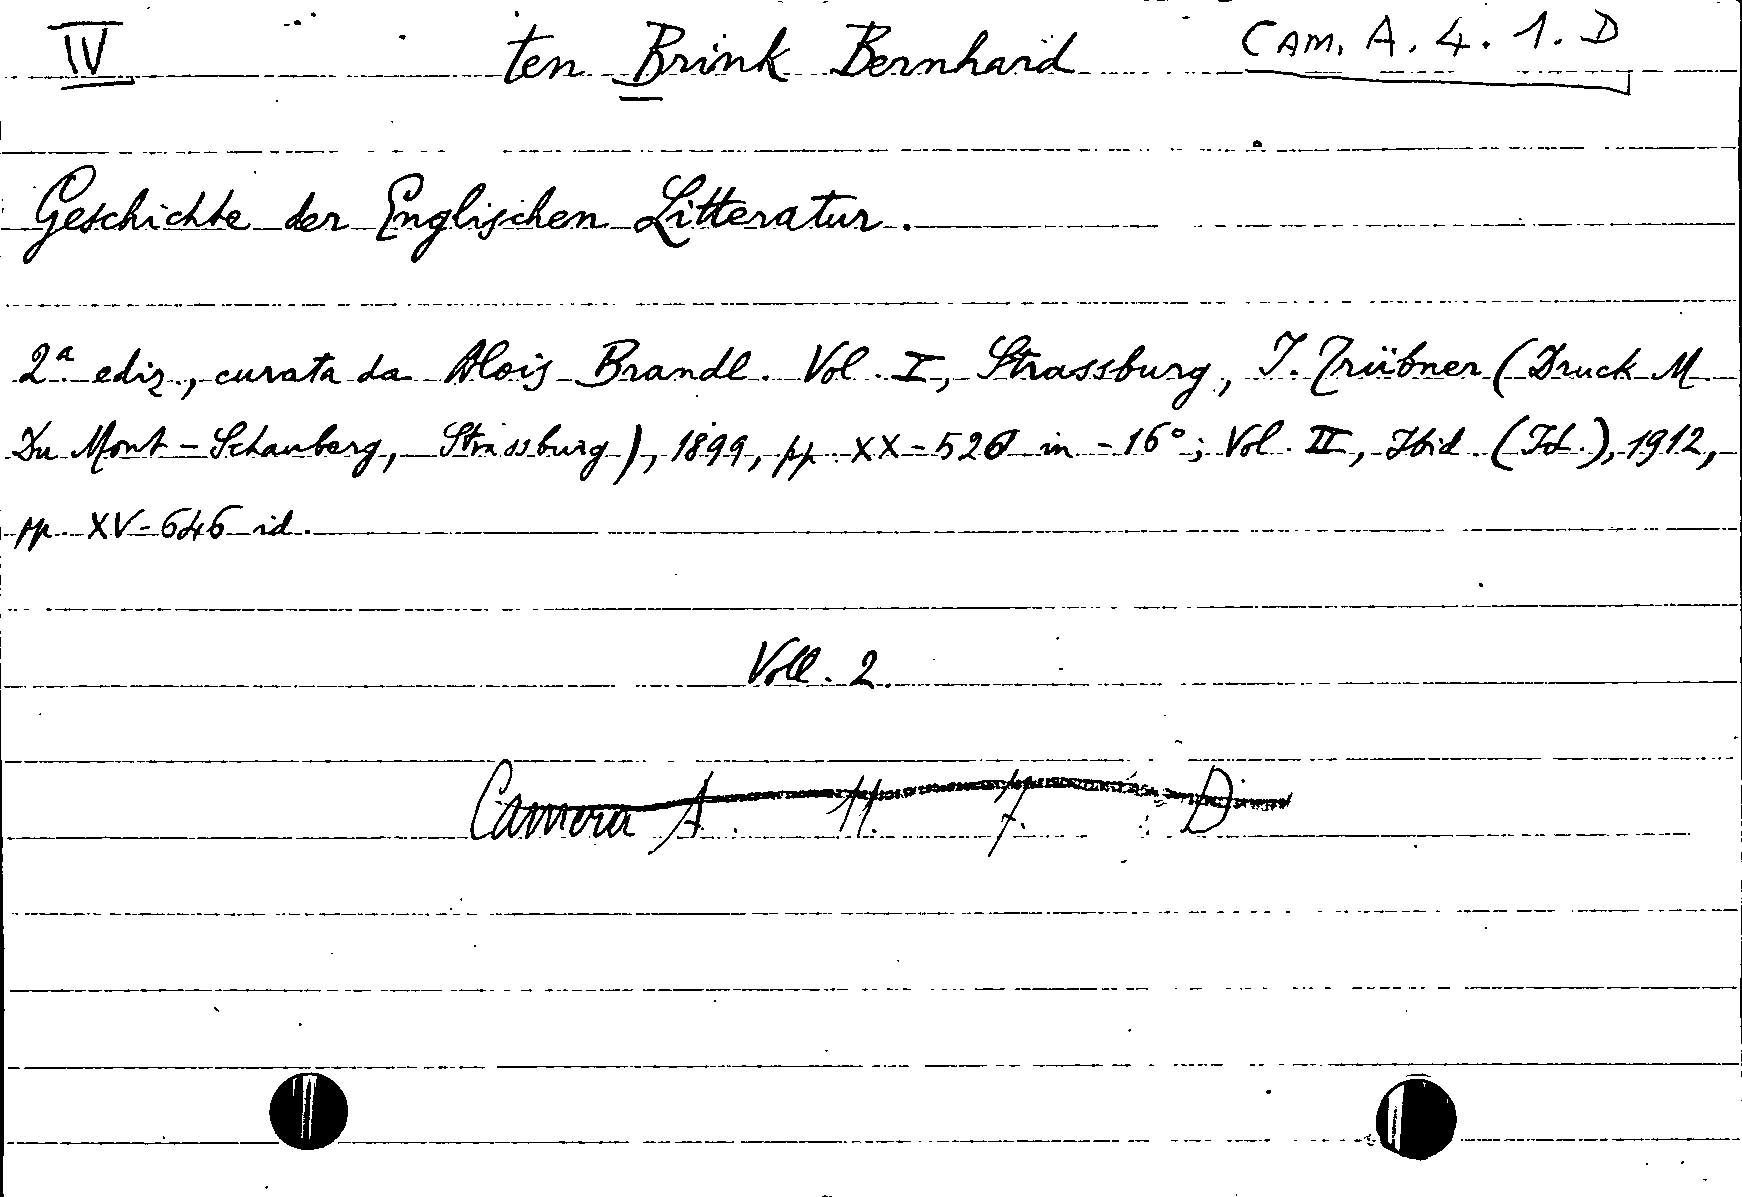 IV ten Brink Bernhard CAM. A. 4. 1. D
Geschichte der Englischen Litteratur.
2ª ediz., curata da Alois Brandl. Vol. I, Strassburg, J. Trübner (Druck M.
Du Mont-Schauberg, Strassburg), 1899, pp. XX-520 in-16°; Vol. II, Ibid. (Id.), 1912,
pp. XV-646 id.
Voll. 2.
Camera A. 11. 7. D